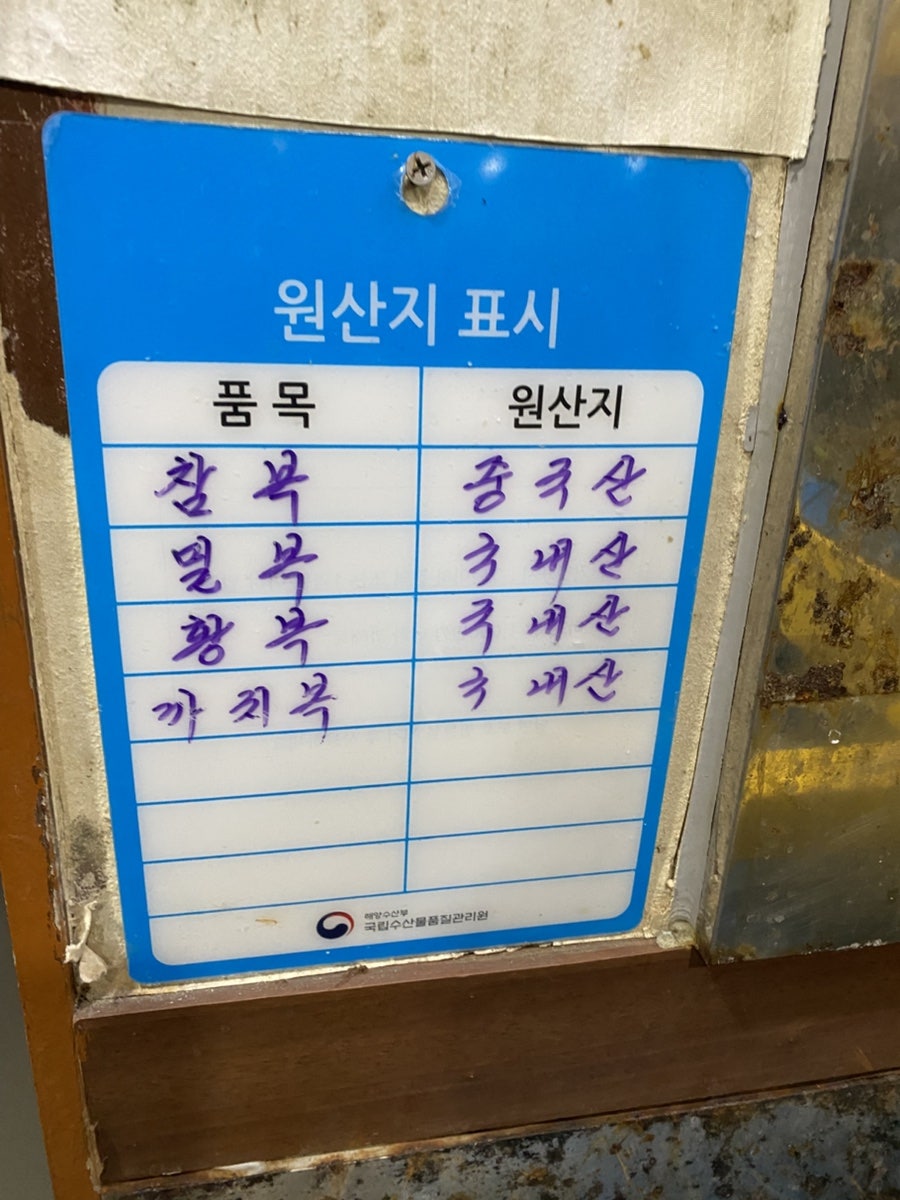 원산지 표시
품목 원산지
참복 중국산
밀복 국내산
황복 국내산
까치복 국내산
해양수산부
국립수산물품질관리원